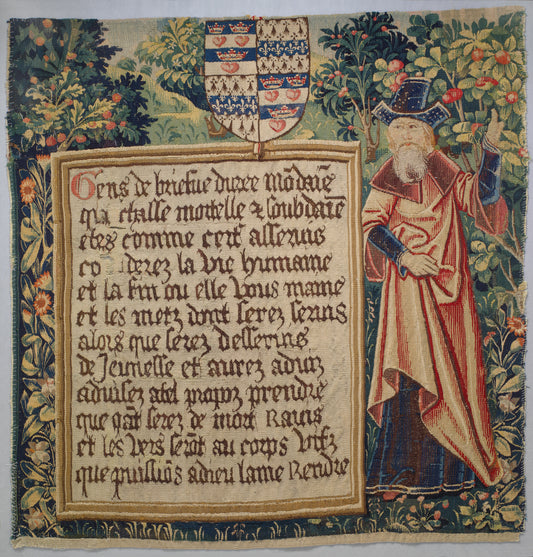 Gens de briefue duree mōdaīe
qui chasse mortelle & soubdaīe
etes comme cerf asseruis
considerez la vie humaine
et la fin ou elle vous maine
et les metz dont serez seruis
alors que serez desseruis
de Jeunesse et aurez aduiz
aduisez a tel propoz prendre
que qāt serez de mort Rauis
et les vers serōt au corps vifz
que puissiōs a dieu lame Rendre